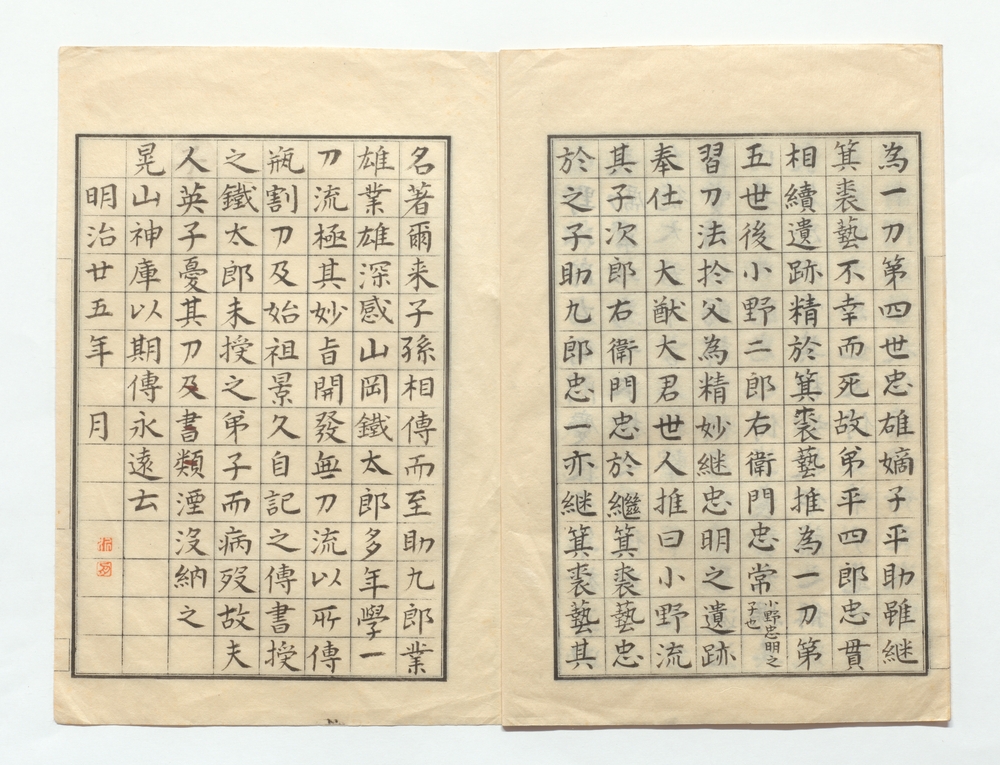 為一刀第四世忠雄嫡子平助雖継
箕裘藝不幸而死故弟平四郎忠貫
相續遺跡精於箕裘藝推為一刀第
五世後小野二郎右衛門忠常小野忠明之子也
習刀法於父為精妙継忠明之遺跡
奉仕 大猷大君世人推曰小野流
其子次郎右衛門忠於繼箕裘藝忠
於之子助九郎忠一亦継箕裘藝其
名著爾来子孫相傳而至助九郎業
雄業雄深感山岡鐵太郎多年學一
刀流極其妙旨開發無刀流以所傳
瓶割刀及始祖景久自記之傳書授
之鐵太郎未授之弟子而病歿故夫
人英子憂其刀及書類湮沒納之
晃山神庫以期傳永遠云
明治廿五年 月